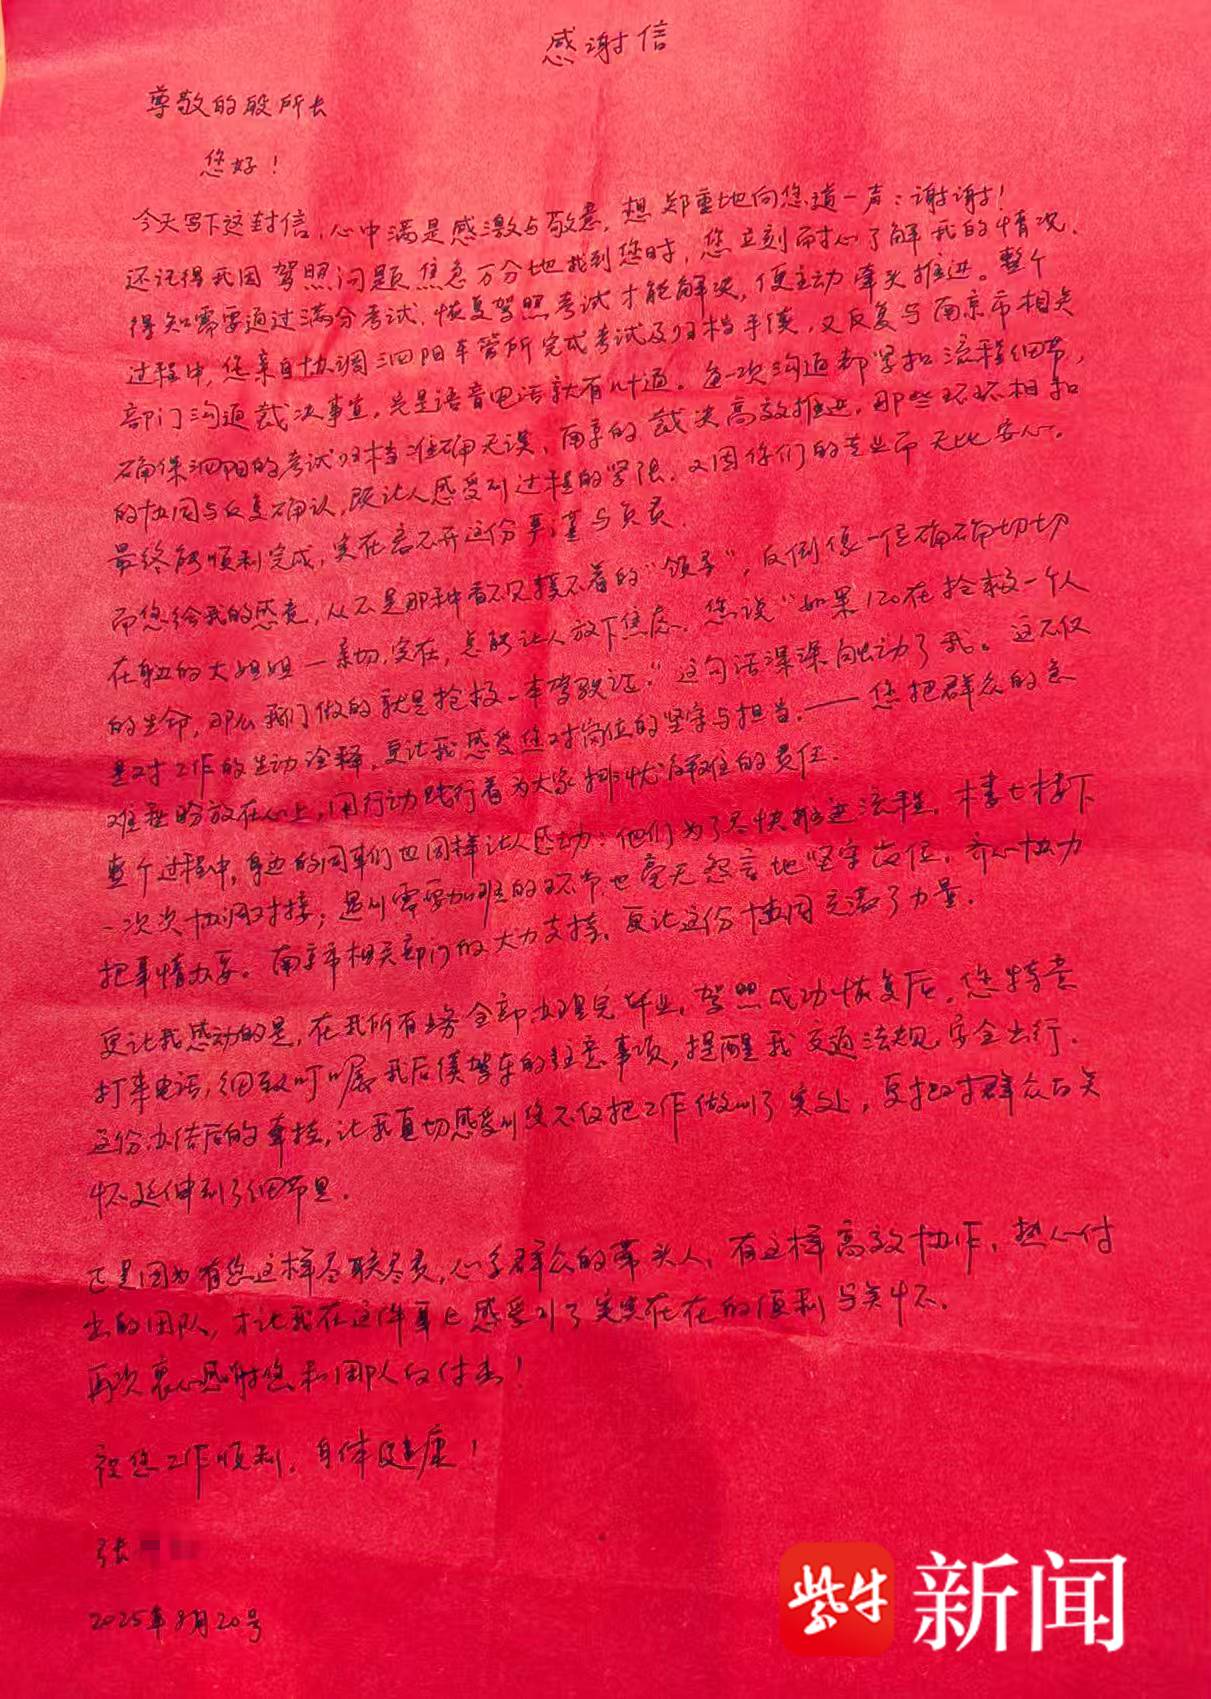 感谢信
尊敬的殷所长
您好！
今天写下这封信，心中满是感激与敬意，想郑重地向您道一声：谢谢！
还记得我因驾照问题焦急万分地找到您时，您立刻耐心了解我的情况．
得知需要通过满分考试，恢复驾照考试才能解决，便主动牵头推进。整个
过程中，您亲自协调泗阳车管所完成考试及归档手续，又反复与南京市相关
部门沟通裁决事宜，光是语音电话就有几十通。每一次沟通都紧扣流程细节，
确保泗阳的考试归档准确无误、南京的裁决高效推进，那些环环相扣
的协同与反复确认，既让人感受到过程的紧张，又因你们的专业而无比安心。
最终能顺利完成，实在离不开这份严谨与负责．
而您给我的感觉，从不是那种看不见摸不着的“领导”，反倒像一位确确切切
在身边的大姐姐—亲切，实在，总能让人放下焦虑．您说“如果120在抢救一个人
的生命，那么我们做的就是抢救一本驾驶证”这句话深深触动了我。这不仅
是对工作的生动诠释，更让我感受您对岗位的坚守与担当．——您把群众的急
难愁盼放在心上，用行动践行着为大家排忧解难的责任．
整个过程中，身边的同事们也同样让人感动：他们为了尽快推进流程，楼上楼下
一次次协调对接；遇到需要加班的环节也毫无怨言地坚守岗位，齐心协力
把事情办妥。南京市相关部门的大力支持，更让这份协同充满了力量．
更让我感动的是，在我所有业务全部办理完毕业，驾照成功恢复后，您特意
打来电话，细致叮嘱我后续驾车的注意事项，提醒我交通法规，安全出行．
这份办结后的牵挂，让我真切感受到您不仅把工作做到了实处，更把对群众的关
怀延伸到了细节里．
正是因为有您这样尽职尽责，心系群众的带头人，有这样高效协作，热心付
出的团队，才让我在这件事上感受到了实实在在的便利与关怀．
再次衷心感谢您和团队的付出！
祝您工作顺利，身体健康！
张
2025年8月20号
紫牛 新闻